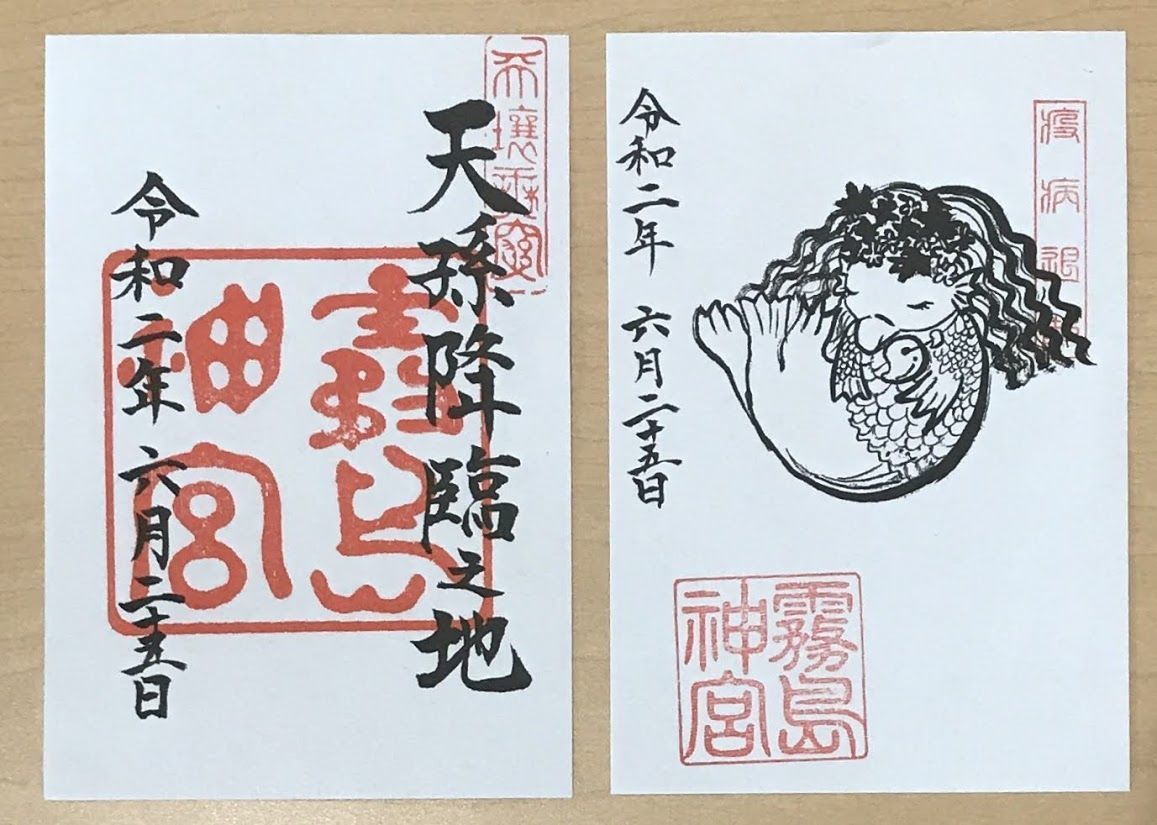 天壤無窮
天孫降臨之地
霧島
神宮
令和二年六月二十五日
疫病退
令和二年 六月二十五日
霧島
神宮